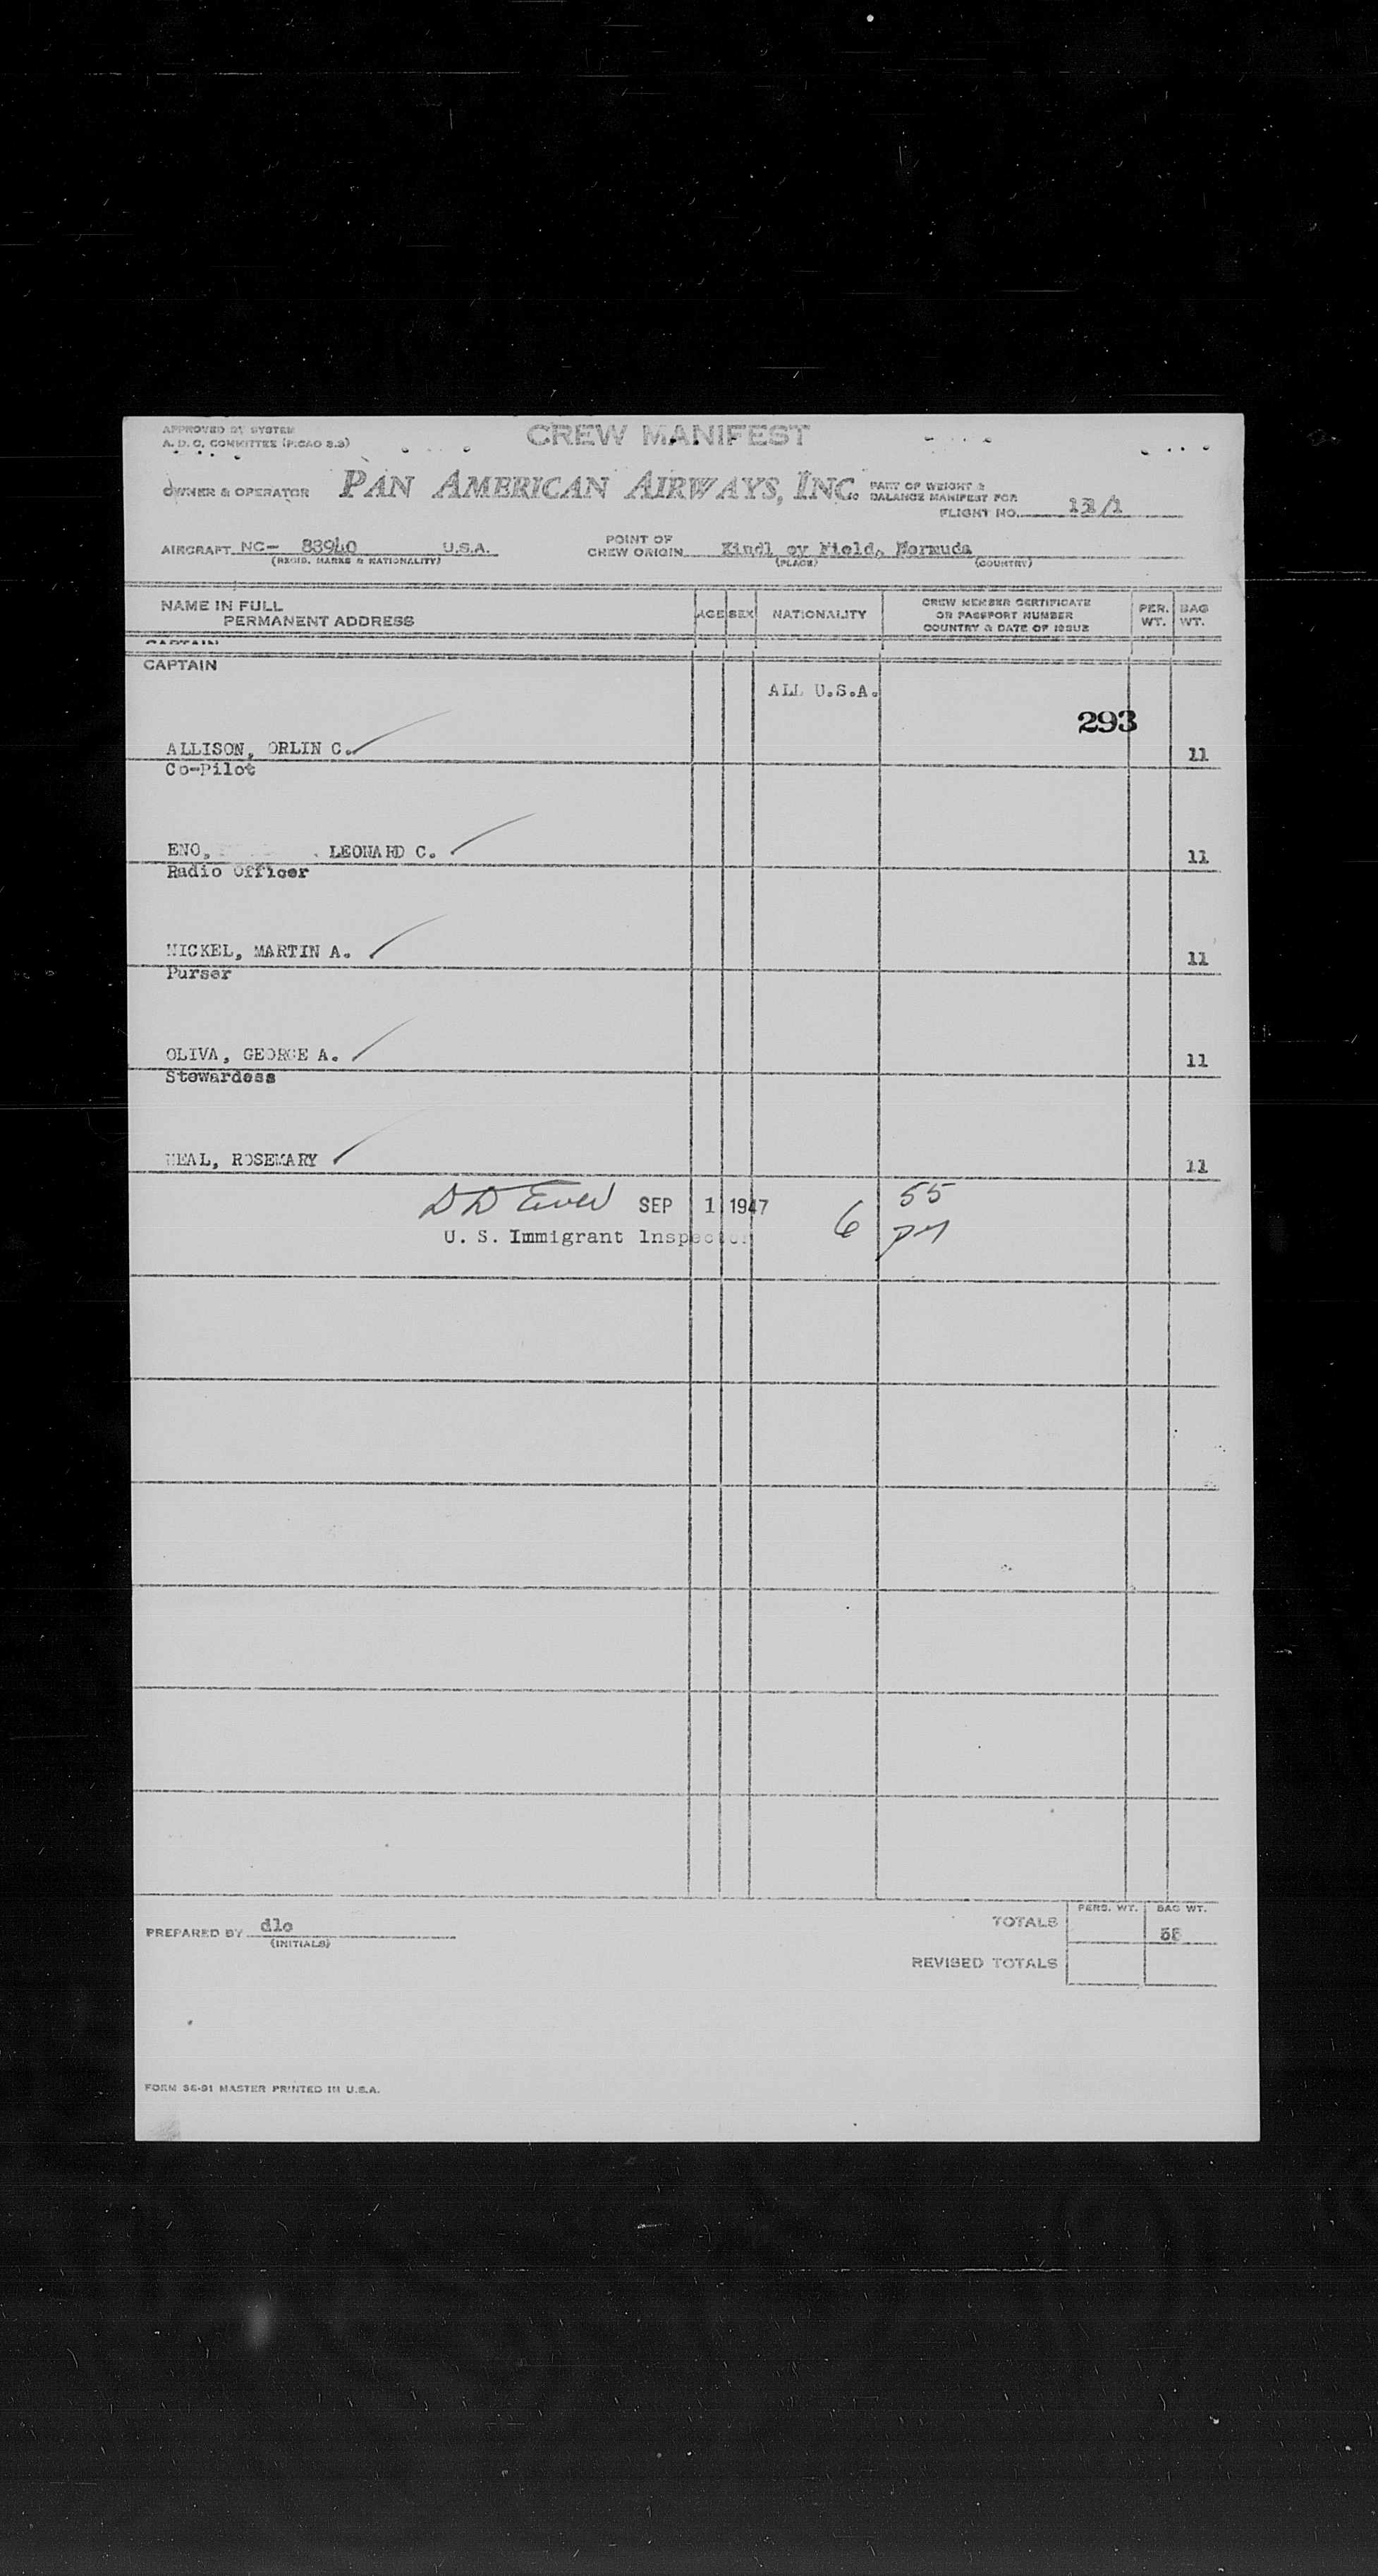 APPROVED BY SYSTEM
A. D. C. COMMITTEE (PICAO 3.3)
CREW MANIFEST
OWNER & OPERATOR PAN AMERICAN AIRWAYS, INC. PART OF WEIGHT &
BALANCE MANIFEST FOR
FLIGHT NO.
AIRCRAFT NC- 83940 U.S.A.
(REGIS. MARKS & NATIONALITY)
POINT OF
CREW ORIGIN Kindl ey Field,
(PLACE) (COUNTRY)
NAME IN FULL
PERMANENT ADDRESS
AGE SEX NATIONALITY
CREW MEMBER CERTIFICATE
OR PASSPORT NUMBER
COUNTRY & DATE OF ISSUE
PER. WT. BAG WT.
CAPTAIN
CAPTAIN
ALL U.S.A.
293
ALLISON, ORLIN C. 11
Co-Pilot
ENO, LEONARD C. 11
Radio Officer
MARTIN A. 11
Purser
OLIVA, GEORGE A. 11
Stewardess
NEAL, ROSEMARY 11
D D SEP 1 1947 6 55 PM
U. S. Immigrant Inspector
PREPARED BY
(INITIALS)
PERS. WT. BAG WT.
TOTALS
REVISED TOTALS
MASTER PRINTED IN U.S.A.